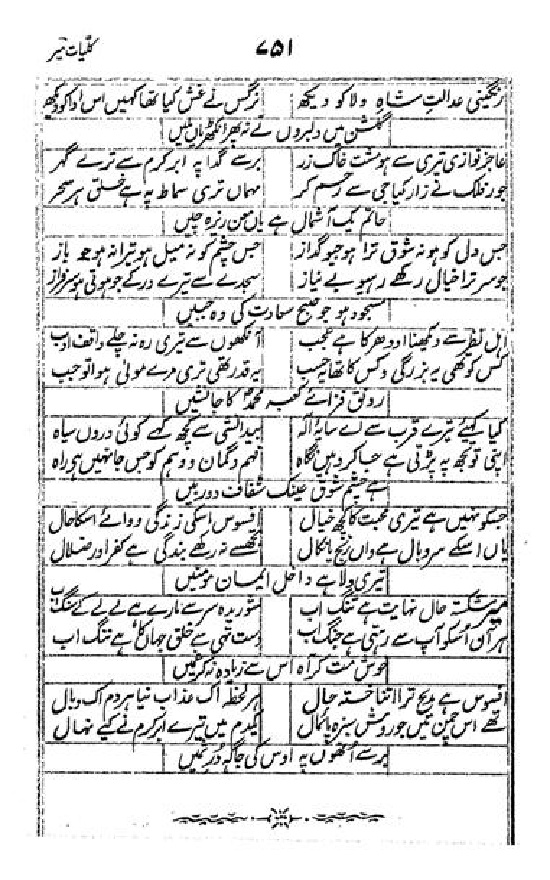 کلیات میر
۷۵۱
رنگینی عدالت شاہ ولا کو دیکھ نرگس نے غش کیا تھا کہیں اس ادا کو دیکھ
گلشن میں دلبروں نے نہ پھر انکھڑیاں ملیں
عاجز نوازی تیری سے ہو مشت خاک زر برسے گدا پہ ابر کرم سے ترے گہر
جور فلک نے زار کیا جی سے رحم کر مہماں تری سماط پہ ہے خلق ہر سحر
حاتم کیا شمال ہے یاں من ریزہ چیں
جس دل کو ہو نہ شوق ترا ہو جیو گداز جس چشم کو نہ میل ہو تیرا نہ ہو جو باز
جو سر ترا خیال رکھے رہیو بے نیاز سجدے سے تیرے در کے جو ہوتی ہو سرفراز
مسجود ہو جو صبح سعادت کی وہ جبیں
اہل نظر سے دیکھنا اودھر کا ہے عجب آنکھوں سے تیری رہ نہ چلے واقف ادب
کس کو تھی یہ بزرگی و کس کا تھا یہ حسب یہ قدر تھی تری مرے مولیٰ ہوا تو جب
رونق فزائے کعبہ محمدؐ کا جانشیں
کیا کہیئے تیرے قرب سے اے سایۂ الہ پیدا لتی سے کچھ کہے کوئی دروں سیاہ
اپنی تو کچھ نہ پڑتی ہے جا کر نہیں نگاہ فہم و گمان و وہم کو جس جا نہیں ہی راہ
ہے چشم شوق عینک شفاف دور بیں
جسکو نہیں ہے تیری محبت کا کچھ خیال افسوس اسکی زندگی و وائے اسکا حال
یاں اسکے سر وبال ہے واں رنج پائمال تجھسے نہ رکھے بندگی ہے کفر اور ضلال
تیری ولا ہے داخل ایمان مومنیں
میر شکستہ حال نہایت ہے تنگ اب شوریدہ سر سے مارے ہے لے لے کے سنگ اب
ہر آن اسکو آپ سے رہتی ہے جنگ اب دست تہی سے خلق جہاں کا ہے تنگ اب
خوش مت کر آہ اس سے زیادہ نہ کر نہیں
افسوس ہے مدیح ترا اتنا خستہ حال ہر لحظہ اک عذاب نیا ہر دم اک وبال
تھے اس چمن میں جو روش سبزہ پائمال یکدم میں تیرے ابر کرم نے کیے نہال
برسے انھوں پہ اوس کی جاگہ در ثمیں